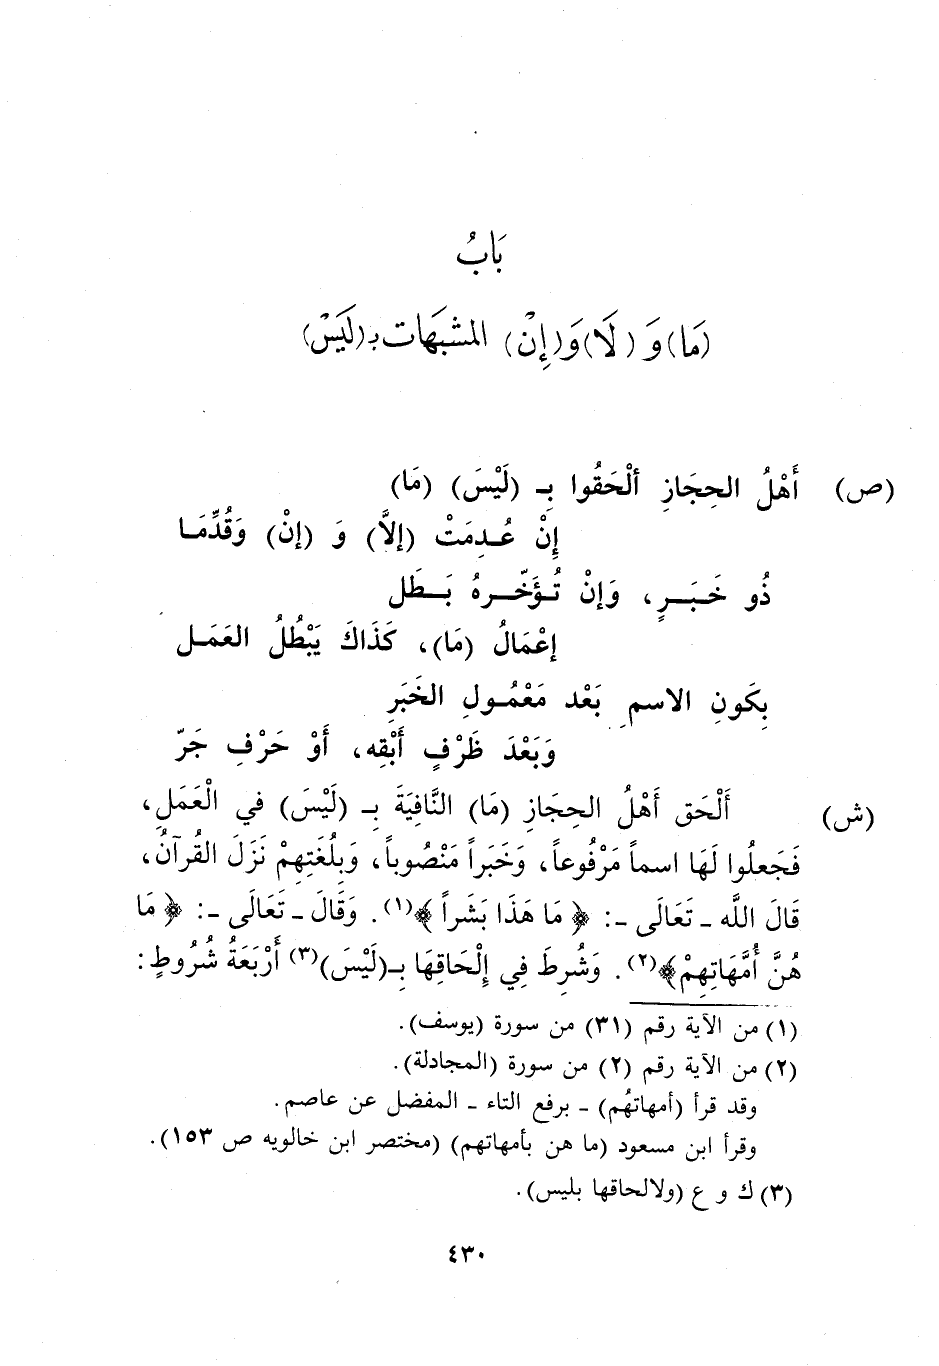 بَابُ
(مَا) وَ (لَا) وَ(إِنْ) المشبَهَات بـ(لَيَسْ)
(ص) أَهْلُ الحِجَازِ ألْحَقُوا بِـ (لَيْسَ) (مَا)
إِنْ عُـدِمَتْ (إلاَّ) وَ (إنْ) وَقُدِّمَـا
ذُو خَـبَـــرٍ، وَإنْ تُـؤَخّـــرهُ بَـــطَل
إعْمَالُ (مَا)، كَذَاكَ يَبْطُلُ العَمَـل
بِكَونِ الاسمِ بَعْد مَعْمُـولِ الخَبَرِ
وَبَعْدَ ظَرْفٍ أَبْقِه، أَوْ حَرْفِ جَرّ
(ش) أَلْحَق أَهْلُ الحِجَازِ (مَا) النَّافِيَةَ بِـ (لَيْسَ) في الْعَمَلِ،
فَجَعلُوا لَهَا اسماً مَرْفُوعاً، وَخَبَراً مَنْصُوباً، وَبِلُغَتِهِمْ نَزَلَ القُرآنُ،
قَالَ اللَّه ـ تَعَالَى ـ: ﴿ مَا هَذَا بَشَراً ﴾(١). وَقَالَ ـ تَعَالَى ـ: ﴿ مَا
هُنَّ أُمَّهَاتِهِمْ﴾(٢). وَشُرِطَ فِي إِلْحَاقِهَا بِـ(لَيْسَ)(٣) أَرْبَعَةُ شُرُوطٍ:
(١) من الآية رقم (٣١) من سورة (يوسف).
(٢) من الآية رقم (٢) من سورة (المجادلة).
وقد قرأ (أمهاتهُم) ـ برفع التاء ـ المفضل عن عاصم.
وقرأ ابن مسعود (ما هن بأمهاتهم) (مختصر ابن خالويه ص ١٥٣).
(٣) ك و ع (ولالحاقها بليس).
٤٣٠